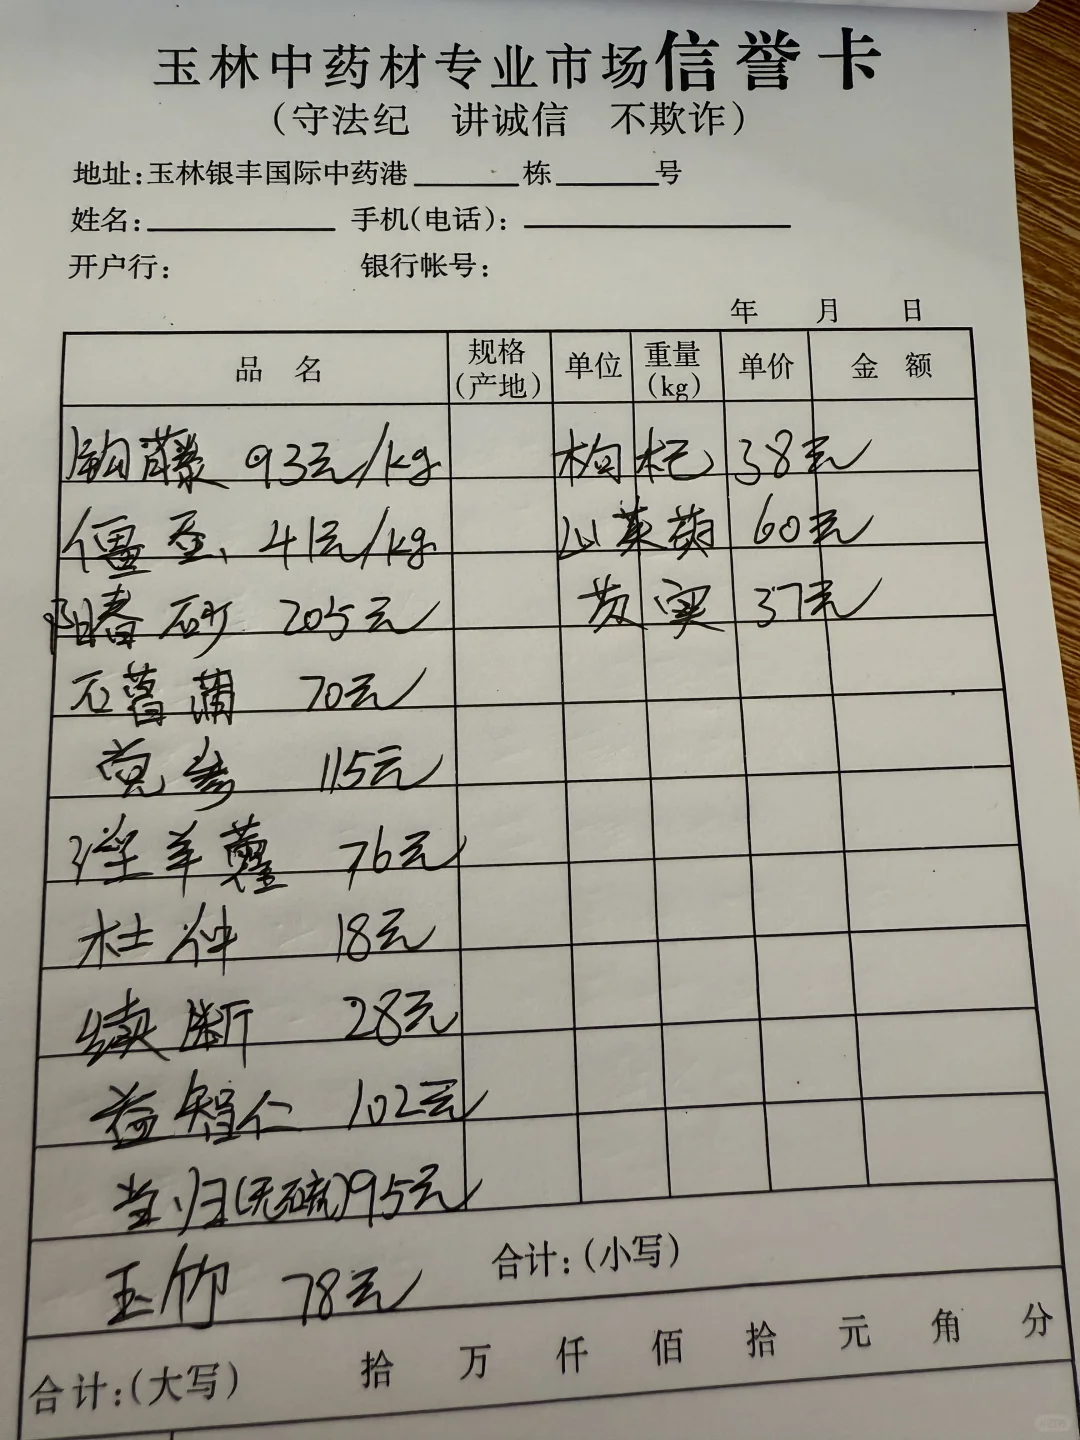 玉林中药材专业市场信誉卡
(守法纪 讲诚信 不欺诈)
地址:玉林银丰国际中药港______栋______号
姓名:__________ 手机(电话):______________
开户行: 银行帐号:
年 月 日
品 名 规格(产地) 单位 重量(kg) 单价 金 额
钩藤 93元/kg 枸杞 38元
僵蚕 41元/kg 山茱萸 60元
阳春砂 205元 芡实 37元
石菖蒲 70元
党参 115元
淫羊藿 76元
杜仲 18元
续断 28元
益智仁 102元
当归(无硫) 95元
玉竹 78元 合计:(小写)
合计:(大写) 拾 万 仟 佰 拾 元 角 分